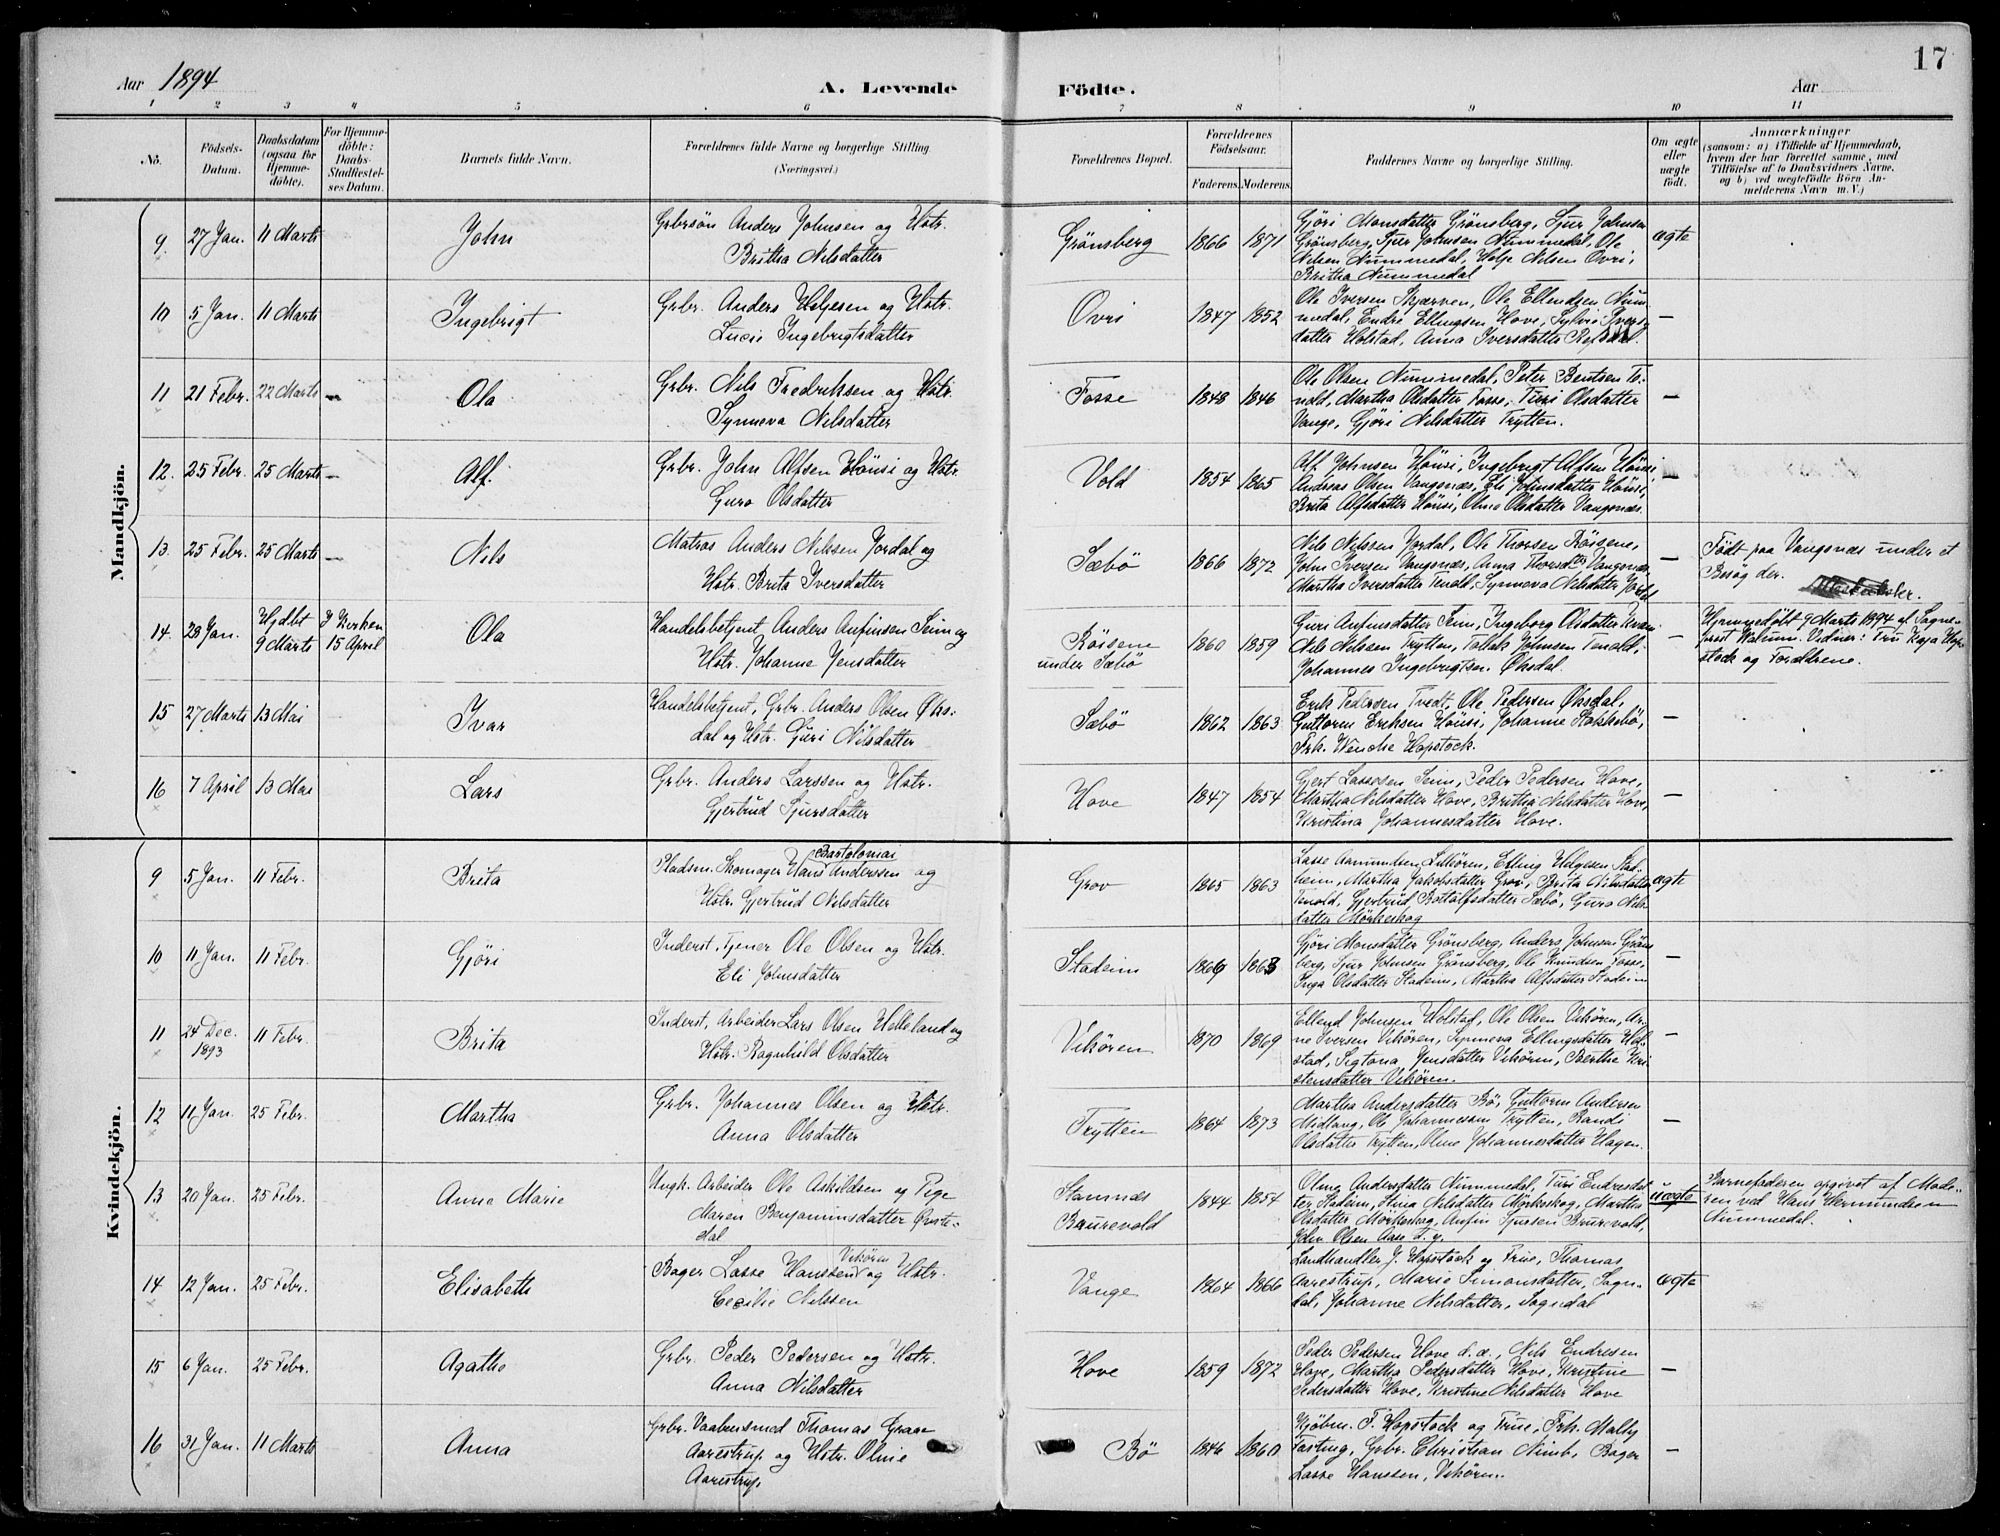 17
Aar 1894
A. Levende Födte.
Aar
1 2 3 4 5 6 7 8 9 10 11
No.
Födsels-
Datum.
Daabsdatum
(ogsaa for
Hjemme-
döbte).
For Hjemme-
döbte:
Daabs-
Stadfestel-
ses Datum.
Barnets fulde Navn.
Forældrenes fulde Navne og borgerlige Stilling
(Næringsvei.)
Forældrenes Bopæl.
Forældrenes
Födselsaar.
Faderens. Moderens.
Faddernes Navne og borgerlige Stilling.
Om ægte
eller
uægte
født.
Anmærkninger
(saasom: a) i Tilfælde af Hjemmedaab,
hvem der har forrettet samme, med
Tilföielse af to Daabsvidners Navne,
og b) ved uægtefödte Börn An-
melderens Navn m. V.)
Mandkjön.
9. 27 Jan. 11 Marts John
Grbrsön Anders Johnsen og Hstr.
Britha Nilsdatter
Grönsberg 1866 1871
Gjöri Monsdatter Grönsberg, Sjur Johnsen
Grönsberg, Sjur Johnsen Nummedal, Ole
Nilsen Nummedal, Helje Nilsen Ovri,
Britha Nummedal
ægte
10 5 Jan. 11 Marts Ingebrigt
Grbr. Anders Helgesen og Hstr.
Lucie Ingebrigtsdatter
Ovri 1847 1852
Ole Iversen Skjærven, Ole Ellendsen Num-
medal, Endre Ellingsen Hove, Sylvi Ivers-
datter Holstad, Anna Iversdatter Refsdal.
—
11 21 Febr. 22 Marts — Ola
Grbr. Nils Fredriksen og Hstr.
Synneva Nilsdatter
Fosse 1848 1846
Ole Olsen Nummedal, Peter Bentsen Te-
nold, Martha Olsdatter Fosse, Turi Olsdatter
Vange, Gjöri Nilsdatter Trytten.
—
12. 25 Febr. 25 Marts — Alf.
Grbr. John Alfsen Höusi og Hstr.
Guro Olsdatter
Vold 1854 1865
Alf Johnsen Höusi, Ingebrigt Alfsen Höusi,
Andreas Olsen Vangsnæs, Eli Johnsdatter Höusi,
Brita Alfsdatter Höusi, Oline Olsdatter Vangsnæs.
—
13. 25 Febr. 25 Marts — Nils
Matros Anders Nilssen Jordal og
Hstr. Brita Iversdatter
Sæbö 1866 1872
Nils Nilssen Jordal, Ole Thorsen Röisene,
John Iversen Vangsnæs, Anna Thorsdtr Vangsnæs,
Martha Iversdatter Tenold, Synneva Nilsdatter Jordal
—
Födt paa Vangsnæs under et
Besög der.
14. 28 Jan. Hjdbt
9 Marts
I Kirken
15 April
Ola
Handelsbetjent Anders Anfinsen Seim og
Hstr. Johanne Jensdatter
Röisene
under Sæbö
1860 1859
Guri Anfinsdatter Seim, Ingeborg Olsdatter
Nils Nilssen Trytten, Tollak Johnsen Tenold,
Johannes Ingebrigtsen Øksdal.
—
Hjemmedøbt 9 Marts 1894 af Sogne-
prest Walaum. Vidner: Fru Kaja Hop-
stock og Foræ​ldrene.
15 27 Marts 13 Mai Ivar
Handelsbetjent, Grbr. Anders Olsen Øks-
dal og Hstr. Guri Nilsdatter
Sæbö 1862 1863
Erik Pedersen Tvedt, Ole Pedersen Øksdal,
Guttorm Eriksen Höusi, Johanne
Frk. Wenche Hopstock.
—
16 7 April 13 Mai Lars
Grbr. Anders Larssen og Hstr.
Gjertrud Sjursdatter
Hove 1847 1854
Gjert Lassesen Seim, Peder Pedersen Hove,
Martha Nilsdatter Hove, Britha Nilsdatter Hove,
Kristina Johannesdatter Hove.
—
Kvindekjön.
9 5 Jan. 11 Febr. Brita
Bartolomai
Pladsm. Skomager Hans Anderssen og
Hstr. Gjertrud Nilsdatter
Grov 1865 1863
Lasse Aamundsen Lilören, Elling Helgesen Sta-
heim, Martha Jakobsdatter Grov, Brita Nilsdatter
Tenold, Gjertrud Botolfsdatter Sæbö, Guro Nils-
datter Mörkeskog
ægte
10 11 Jan. 11 Febr. Gjöri
Inderst, Tjener Ole Olsen og Hstr.
Eli Johnsdatter
Stadeim 1866 1863
Gjöri Monsdatter Grönsberg, Anders Johnsen Gröns-
berg, Sjur Johnsen Grönsberg, Ole Knudsen Fosse,
Inga Olsdatter Stadeim, Martha Alfsdatter Stadeim
—
11 24 Dec.
1893
11 Febr. Brita
Inderst, Arbeider Lars Olsen Helleland og
Hstr. Ragnhild Olsdatter
Vikören 1870 1869
Ellend Johnsen Holstad, Ole Olsen Vikören, Ar-
ne Iversen Vikören, Synneva Ellingsdatter Hol-
stad, Sigtona Jensdatter Vikören, Berthe Kri-
stensdatter Vikören.
—
12 11 Jan. 25 Febr. Martha
Grbr. Johannes Olsen og Hstr.
Anna Olsdatter
Trytten 1864 1873
Martha Andersdatter Bö, Guttorm Andersen
Midlang, Ole Johannessen Trytten, Randi
Olsdatter Trytten, Oline Johannesdatter Hagen.
—
13 20 Jan. 25 Febr. Anna Marie
Ungk. Arbeider Ole Askildsen og Pige
Maren Benjaminsdatter Øvste-
dal
Stamnæs
Baurevold
1844 1854
Oline Andersdatter Nummedal, Turi Endresdat-
ter Stadeim, Stina Nilsdatter Mörkeskog, Martha
Olsdatter Mörkeskog, Anfin Sjursen Baurevold,
John Olsen Aase d. y.
uægte
Barnefaderen opgivet af Mode-
ren ved Hans Hermundsen
Nummedal.
14 12 Jan. 25 Febr. Elisabeth
Vikören
Bager Lasse Hanssen og Hstr.
Cecilie Nilssen
Vange 1864 1866
Landhandler J. Hopstock og Frue, Thomas
Aarestrup, Marie Simonsdatter, Sogn-
dal, Johanne Nilsdatter, Sogndal
ægte
15 6 Jan. 25 Febr. Agathe
Grbr. Peder Pedersen og Hstr.
Anna Nilsdatter
Hove 1859 1872
Peder Pedersen Hove d. æ., Nils Endresen
Hove, Martha Pedersdatter Hove, Kristine
Pedersdatter Hove, Kristine Nilsdatter Hove
—
16 31 Jan. 11 Marts Anna
Grbr. Vaabensmed Thomas Graae
Aarestrup og Hstr. Oline
Aarestrup.
Bö 1846 1860
Kjöbm. F. Hopstock og Frue, Frk. Malby
Fasting, Grbr. Christian Nimb, Bager
Lasse Hanssen, Vikören.
—